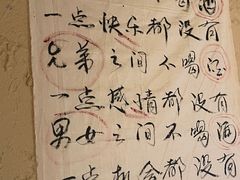 一点快乐都没有
兄弟之间不喝酒
一点感情都没有
男女之间不喝酒
一点机会都没有